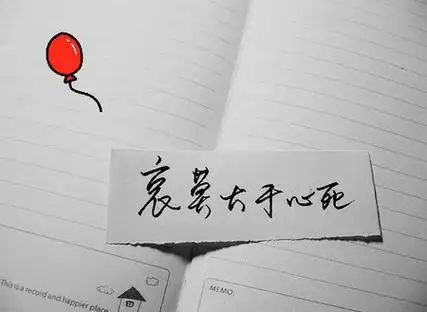 哀莫大于心死
This is a record and happier place
MEMO: